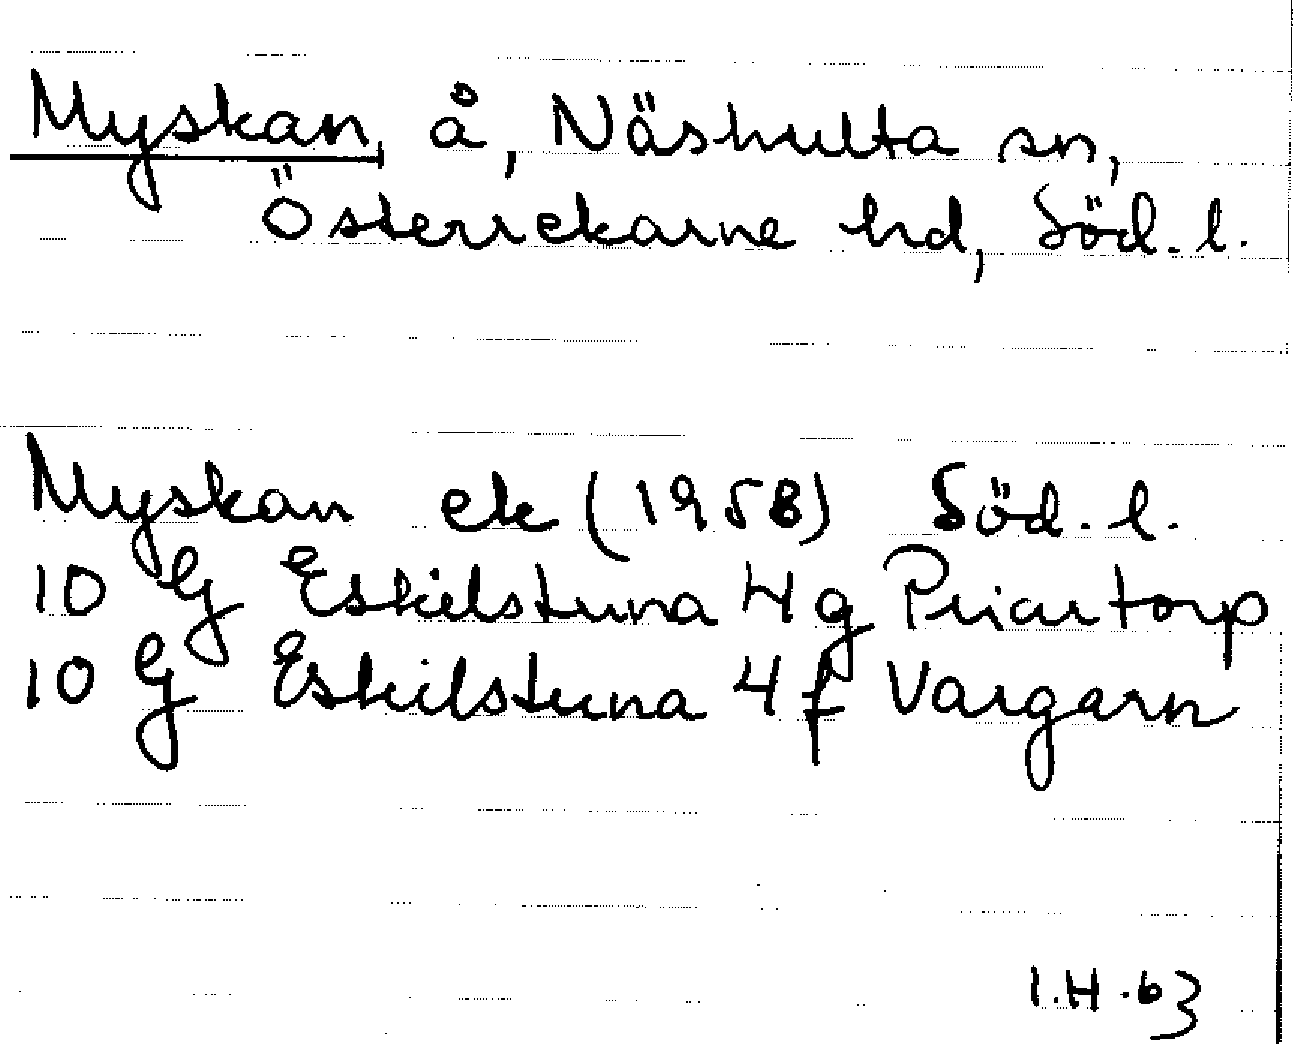 Myskan, å, Näshulta sn,
Österrekarne hd, Söd. l.
Myskan ek (1958) Söd. l.
10 G Eskilstuna 4 g Priartorp
10 G Eskilstuna 4 f Vargarn
I.H. 63